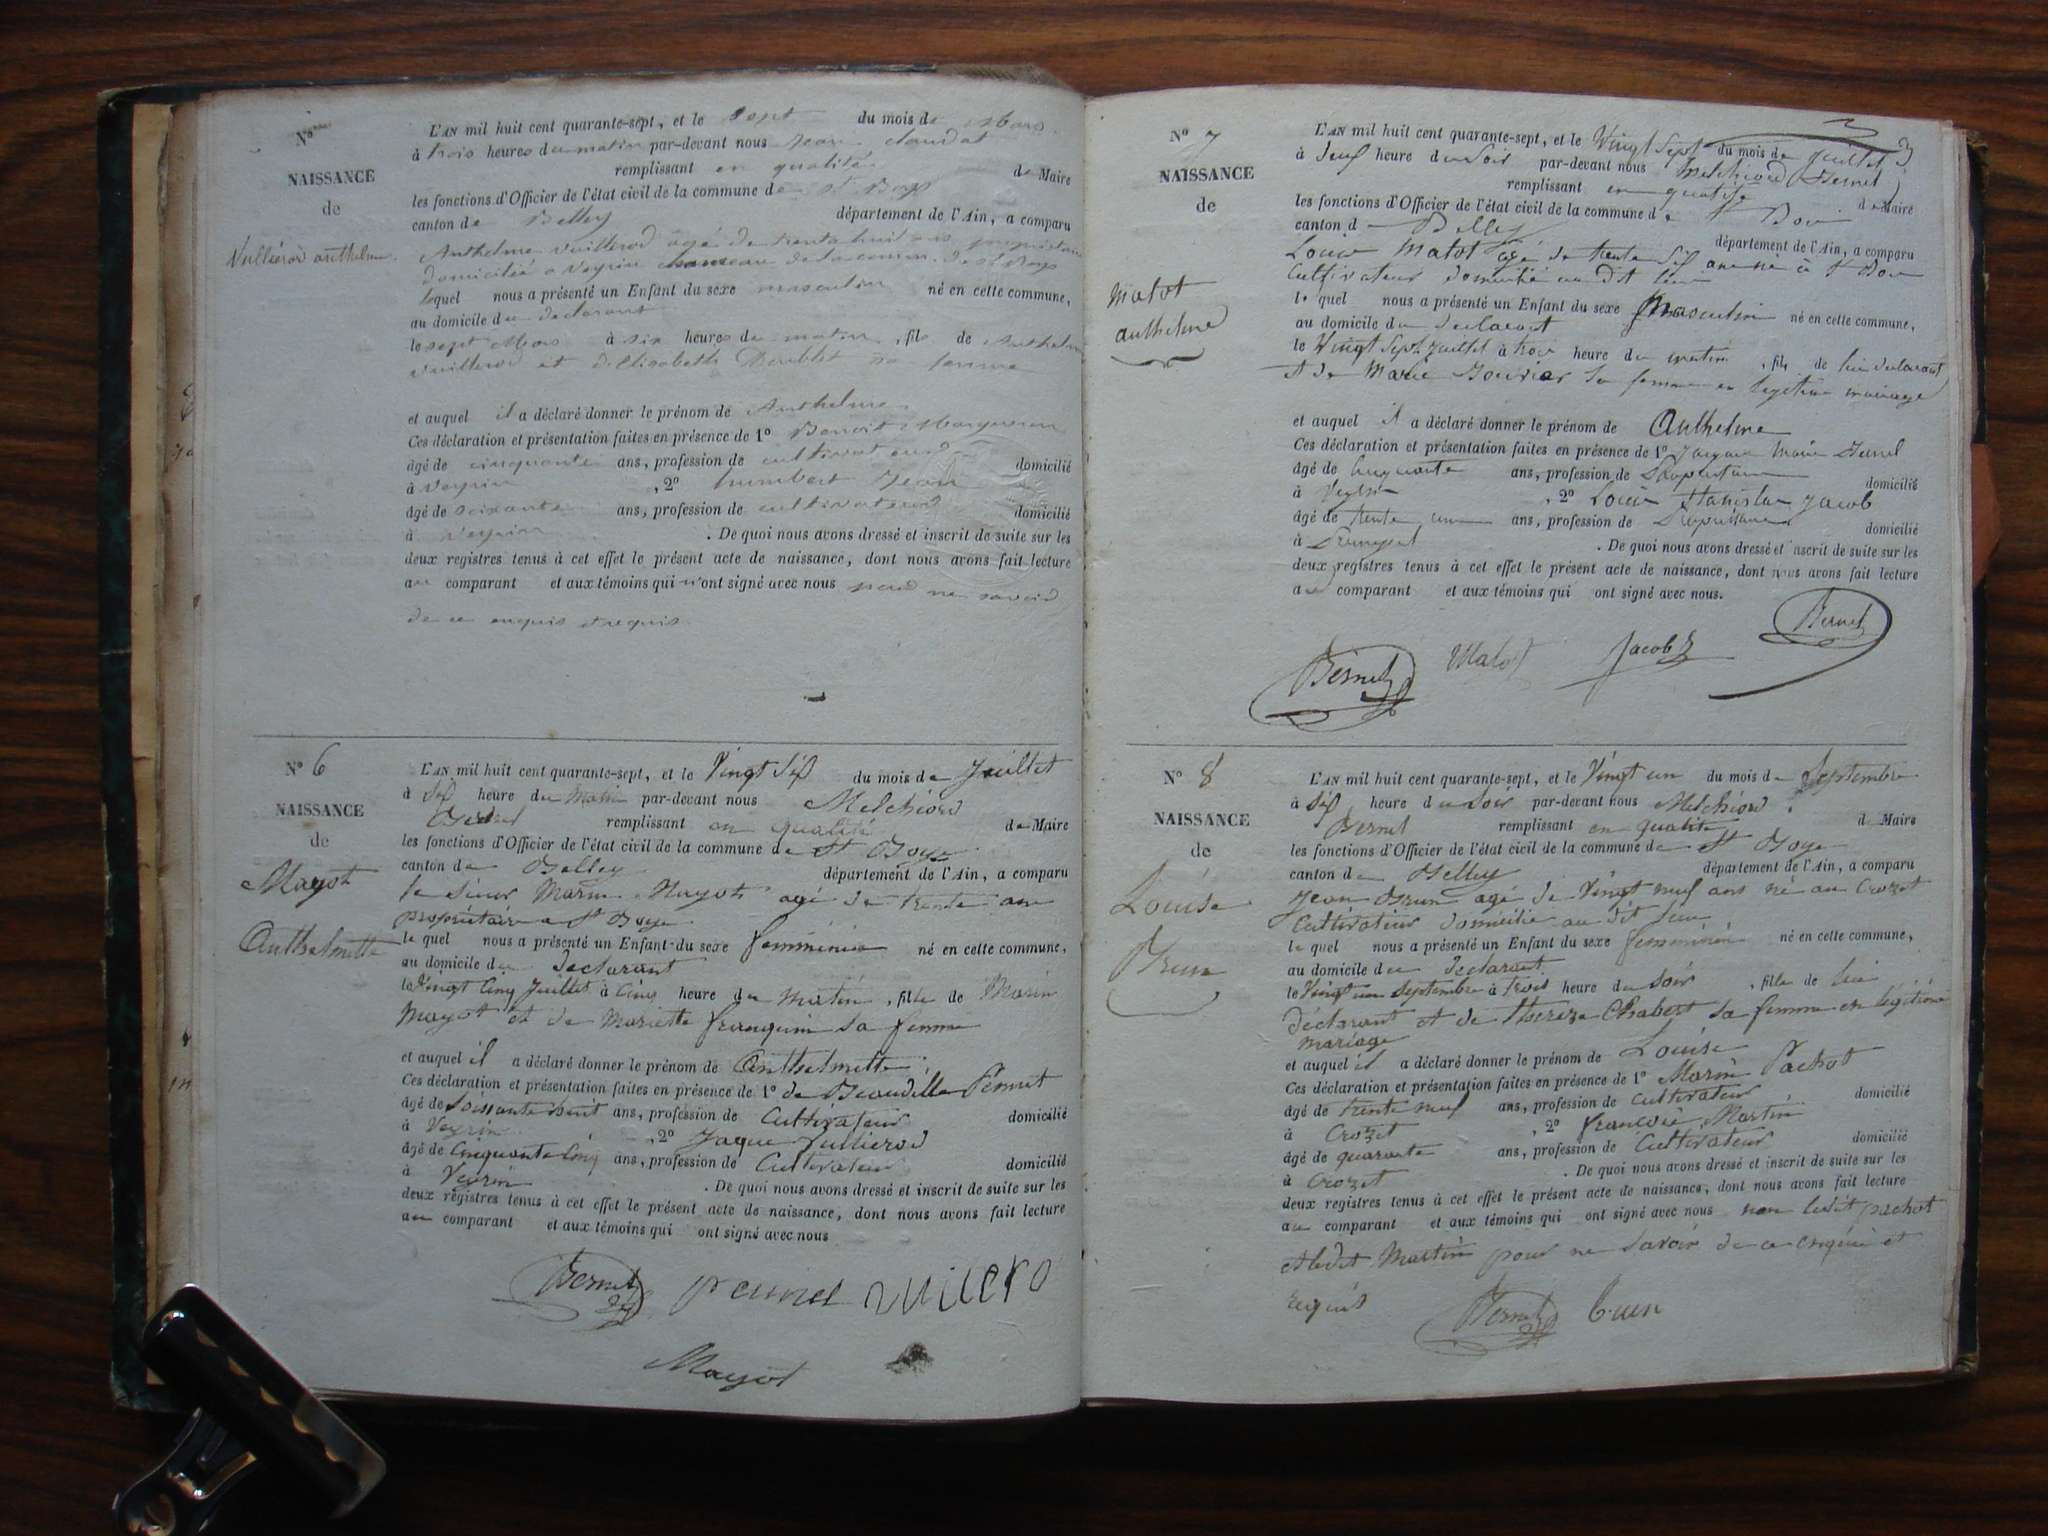 N°
NAISSANCE
de
Vulliérod anthelme.
L'AN mil huit cent quarante-sept, et le sept du mois de Mars
à trois heures du matin par-devant nous Jean claudat
remplissant en qualité de Maire
les fonctions d'Officier de l'état civil de la commune de St Boys
canton de Belley département de l'Ain, a comparu
Anthelme vuillerod âgé de trente huit ans propriétaire
domicilié à Veyrin hameau de la commune de St Boys
lequel nous a présenté un Enfant du sexe masculin né en cette commune,
au domicile du déclarant
le sept Mars à six heures du matin, fils de Anthelme
vuillerod et d'Elisabeth sa femme
et auquel il a déclaré donner le prénom de Anthelme
Ces déclaration et présentation faites en présence de 1° Benoit
âgé de cinquante ans, profession de cultivateur domicilié
à Veyrin, 2° humbert Jean
âgé de soixante ans, profession de cultivateur domicilié
à Veyrin. De quoi nous avons dressé et inscrit de suite sur les
deux registres tenus à cet effet le présent acte de naissance, dont nous avons fait lecture
au comparant et aux témoins qui n'ont signé avec nous pour ne savoir
de ce enquis et requis
N° 6
NAISSANCE
de
Mayot
Anthelmette
L'AN mil huit cent quarante-sept, et le Vingt Six du mois de Juillet
à Six heure du Matin par-devant nous Melchiord
Bernet remplissant en qualité de Maire
les fonctions d'Officier de l'état civil de la commune de St Boys
canton de Belley département de l'Ain, a comparu
le Sieur Marin Mayot agé de trente ans
propriétaire a St Boys
le quel nous a présenté un Enfant du sexe femminin né en cette commune,
au domicile du declarant
le Vingt Cinq Juillet à Cinq heure du Matin, fille de Marin
Mayot et de Mariette franquin sa femme
et auquel il a déclaré donner le prénom de Anthelmette
Ces déclaration et présentation faites en présence de 1° de Pernet
âgé de Soissante huit ans, profession de Cultivateur domicilié
à Veyrin, 2° Jaque Vullierod
âgé de Cinquante Cinq ans, profession de Cultivateur domicilié
à Veyrin. De quoi nous avons dressé et inscrit de suite sur les
deux registres tenus à cet effet le présent acte de naissance, dont nous avons fait lecture
au comparant et aux témoins qui ont signé avec nous
Bernet
Mayot
N° 7
NAISSANCE
de
Matot
anthelme
3
L'AN mil huit cent quarante-sept, et le Vingt Sept du mois de Juillet
à Neuf heure du Soir par-devant nous Melchiord Bernet
remplissant en qualité de Maire
les fonctions d'Officier de l'état civil de la commune de St Boys
canton de Belley département de l'Ain, a comparu
Louis Matot agé de trente Six ans né à St Bois
Cultivateur domicilié au dit lieu
le quel nous a présenté un Enfant du sexe Masculin né en cette commune,
au domicile du declarant
le Vingt Sept Juillet à trois heure du matin, fils de lui declarant
et de Marie sa femme en legitime mariage
et auquel il a déclaré donner le prénom de Anthelme
Ces déclaration et présentation faites en présence de 1° Jacques Marie
âgé de Cinquante ans, profession de Propriétaire domicilié
à Veyrin, 2° Louis Stanislas Jacob
âgé de trente un ans, profession de Propriétaire domicilié
à. De quoi nous avons dressé et inscrit de suite sur les
deux registres tenus à cet effet le présent acte de naissance, dont nous avons fait lecture
au comparant et aux témoins qui ont signé avec nous.
Bernet Matot Jacob Bernet
N° 8
NAISSANCE
de
Louise
Brun
L'AN mil huit cent quarante-sept, et le Vingt un du mois de Septembre
à Six heure du Soir par-devant nous Melchiord
Bernet remplissant en qualité de Maire
les fonctions d'Officier de l'état civil de la commune de St Boys
canton de Belley département de l'Ain, a comparu
Jean Brun agé de Vingt neuf ans né au Crozet
Cultivateur domicilié au dit lieu
le quel nous a présenté un Enfant du sexe femminin né en cette commune,
au domicile du declarant
le Vingt un Septembre à trois heure du soir, fille de lui
déclarant et de thereze Chabert sa femme en légitime
mariage
et auquel il a déclaré donner le prénom de Louise
Ces déclaration et présentation faites en présence de 1° Marin Pachot
âgé de trente neuf ans, profession de Cultivateur domicilié
à Crozet, 2° francois Martin
âgé de quarante ans, profession de Cultivateur domicilié
à Crozet. De quoi nous avons dressé et inscrit de suite sur les
deux registres tenus à cet effet le présent acte de naissance, dont nous avons fait lecture
au comparant et aux témoins qui ont signé avec nous non ledit pachot
et ledit Martin pour ne savoir de ce enquis et
requis
Bernet brun